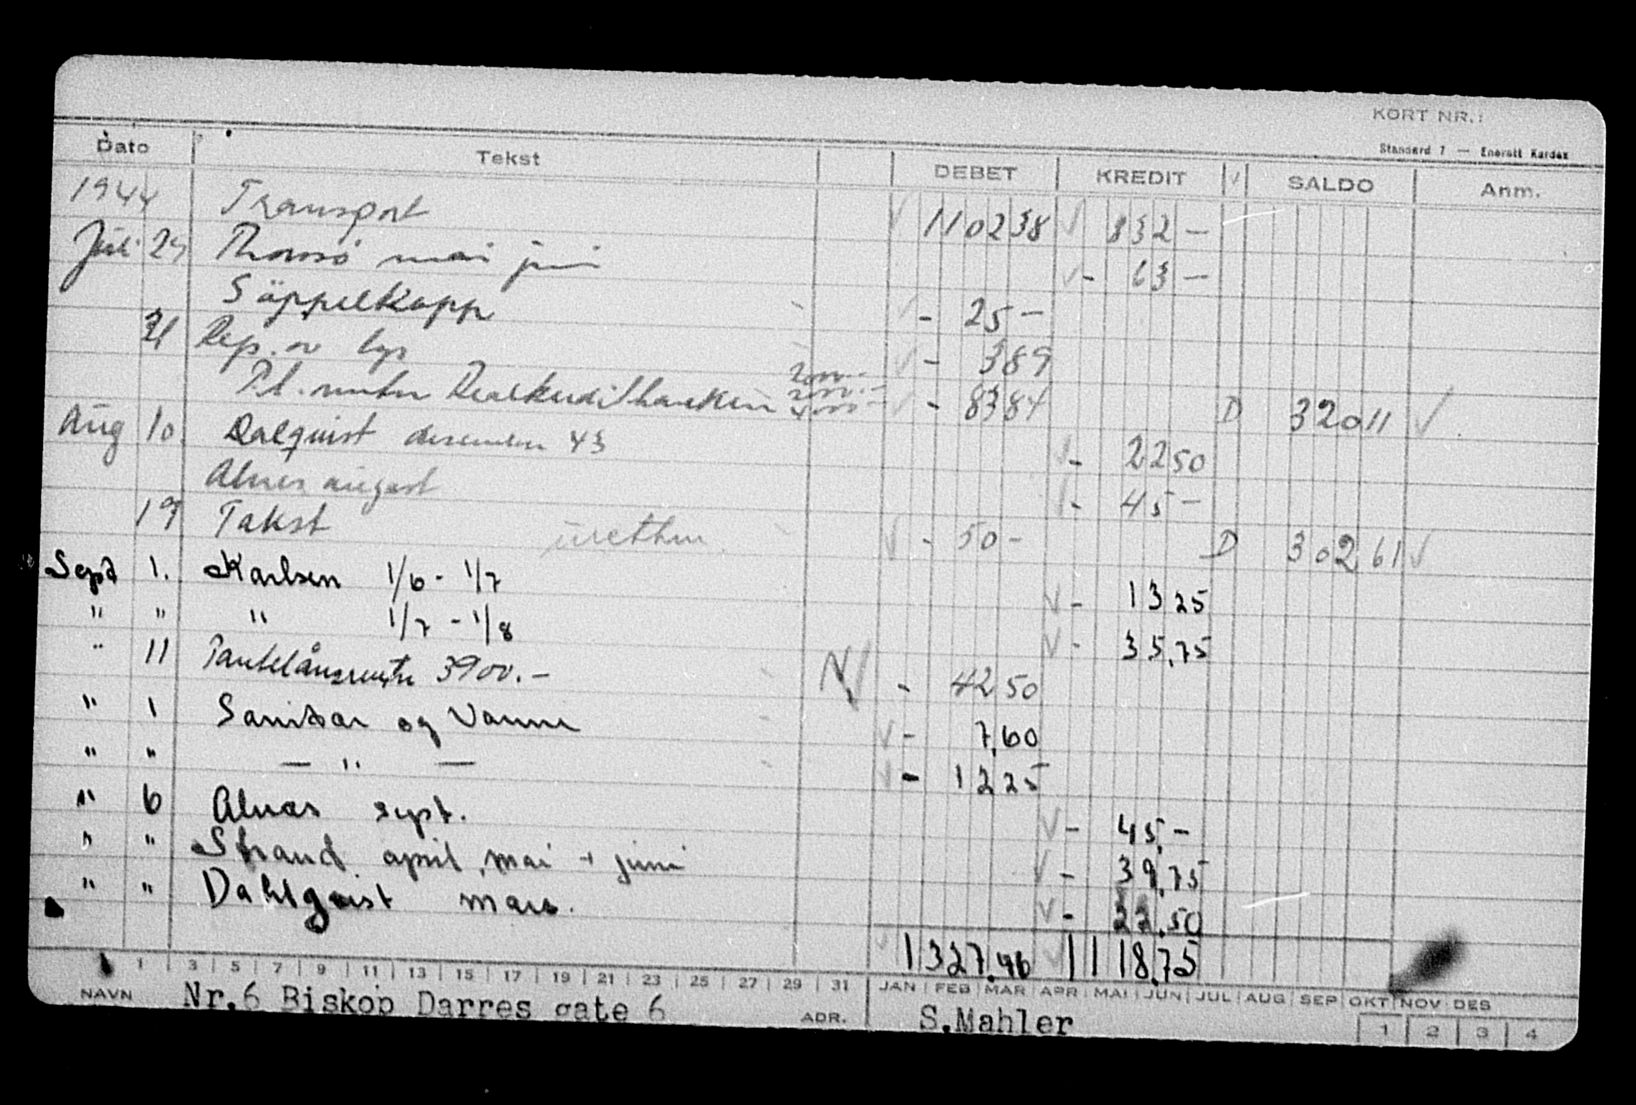 KORT NR.:
Standard 7 — Enerett Kardex
Dato Tekst DEBET KREDIT √ SALDO Anm.
1944 Transport √ 110238 √ 832 —
Juli 25 mai juni √ - 63 —
Söppelkopp √ - 25 —
31 Rep. av lys √ - 389
2000.-
2000.-
4000.-
Realkreditbanken √ - 8384 D 32011 √
Aug 10. Dalquist desember 43 √ - 2250
Alnæs august √ - 45 —
19 Takst √ - 50 - D 30261 √
Sept 1. Karlsen 1/6 - 1/7 √ - 1325
" " " 1/7 - 1/8 √ - 35,75
" 11 Pantelånsrente 3900.— N √ - 4250
" 1 Sanitær og Varme √ - 7,60
" " — " — √ - 1225
" 6 Alnæs sept. √ - 45,-
" " Strand april, mai + juni √ - 39,75
" " Dahlquist mars. √ - 22,50
√ 1327,46 √ 1118,75
1 3 5 7 9 11 13 15 17 19 21 23 25 27 29 31 JAN FEB MAR APR MAI JUN JUL AUG SEP OKT NOV DES
NAVN Nr.6 Biskop Darres gate 6 ADR. S.Mahler 1 2 3 4